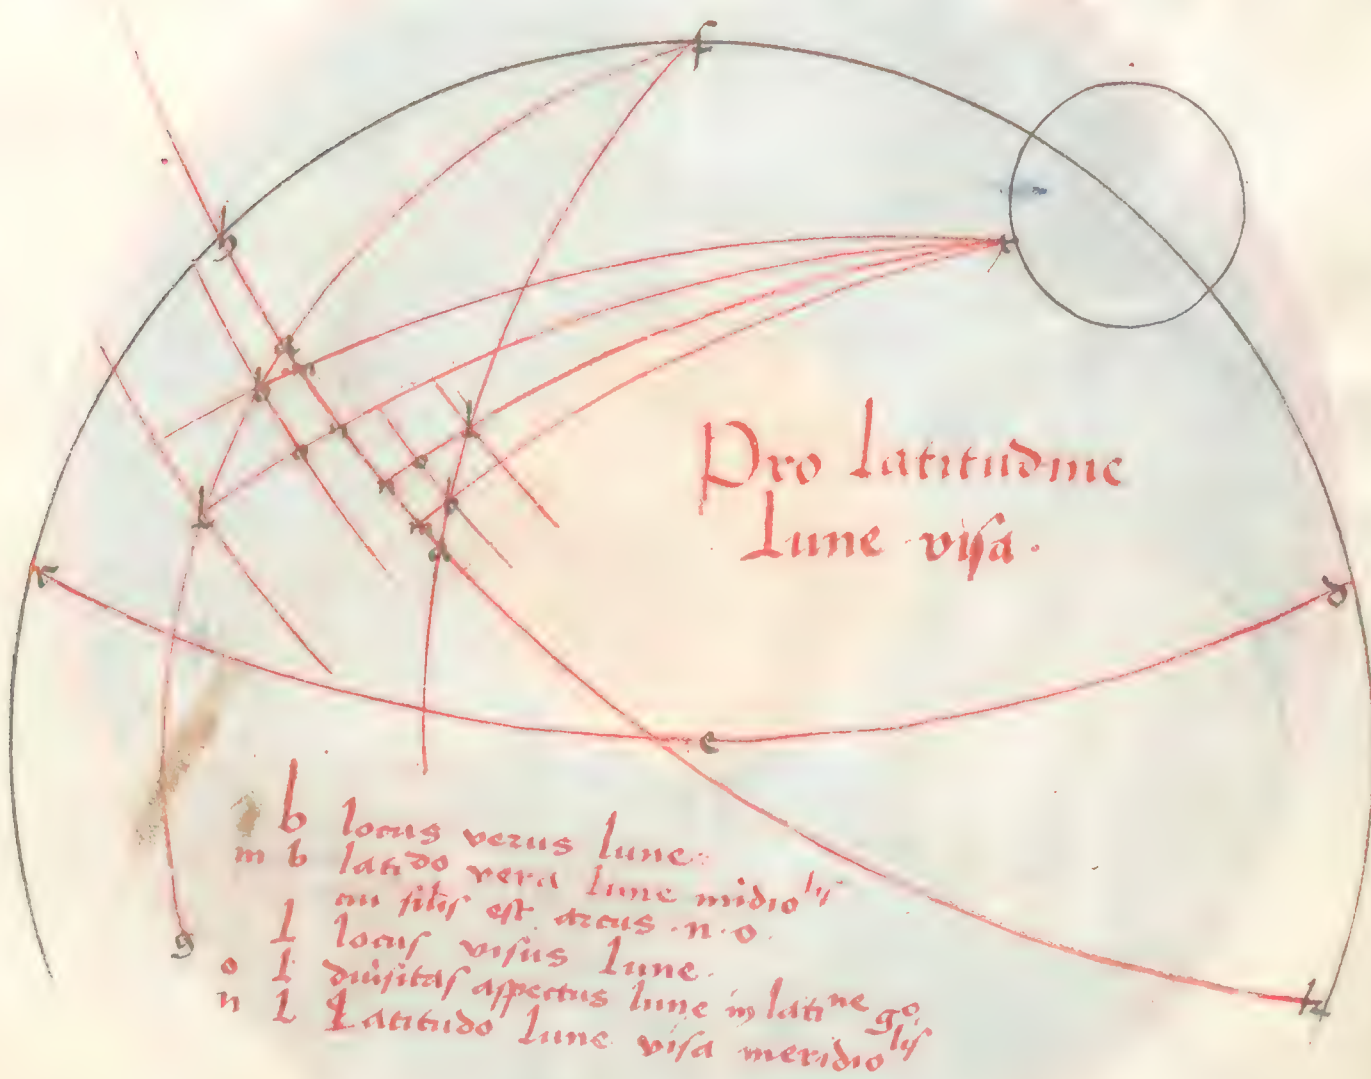 f
h
k
Pro latitudine
lune visa.
d
e
g
b locus verus lune
m b latido vera lune midio lis
cui silis est arcus .n.o.
l locus visus lune.
o l diusitas aspectus lune in lati ne go.
n l Latitudo lune visa meridio lis